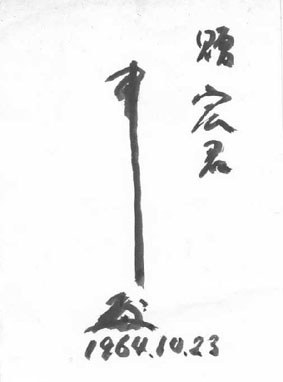 贈宏君
1964.10.23